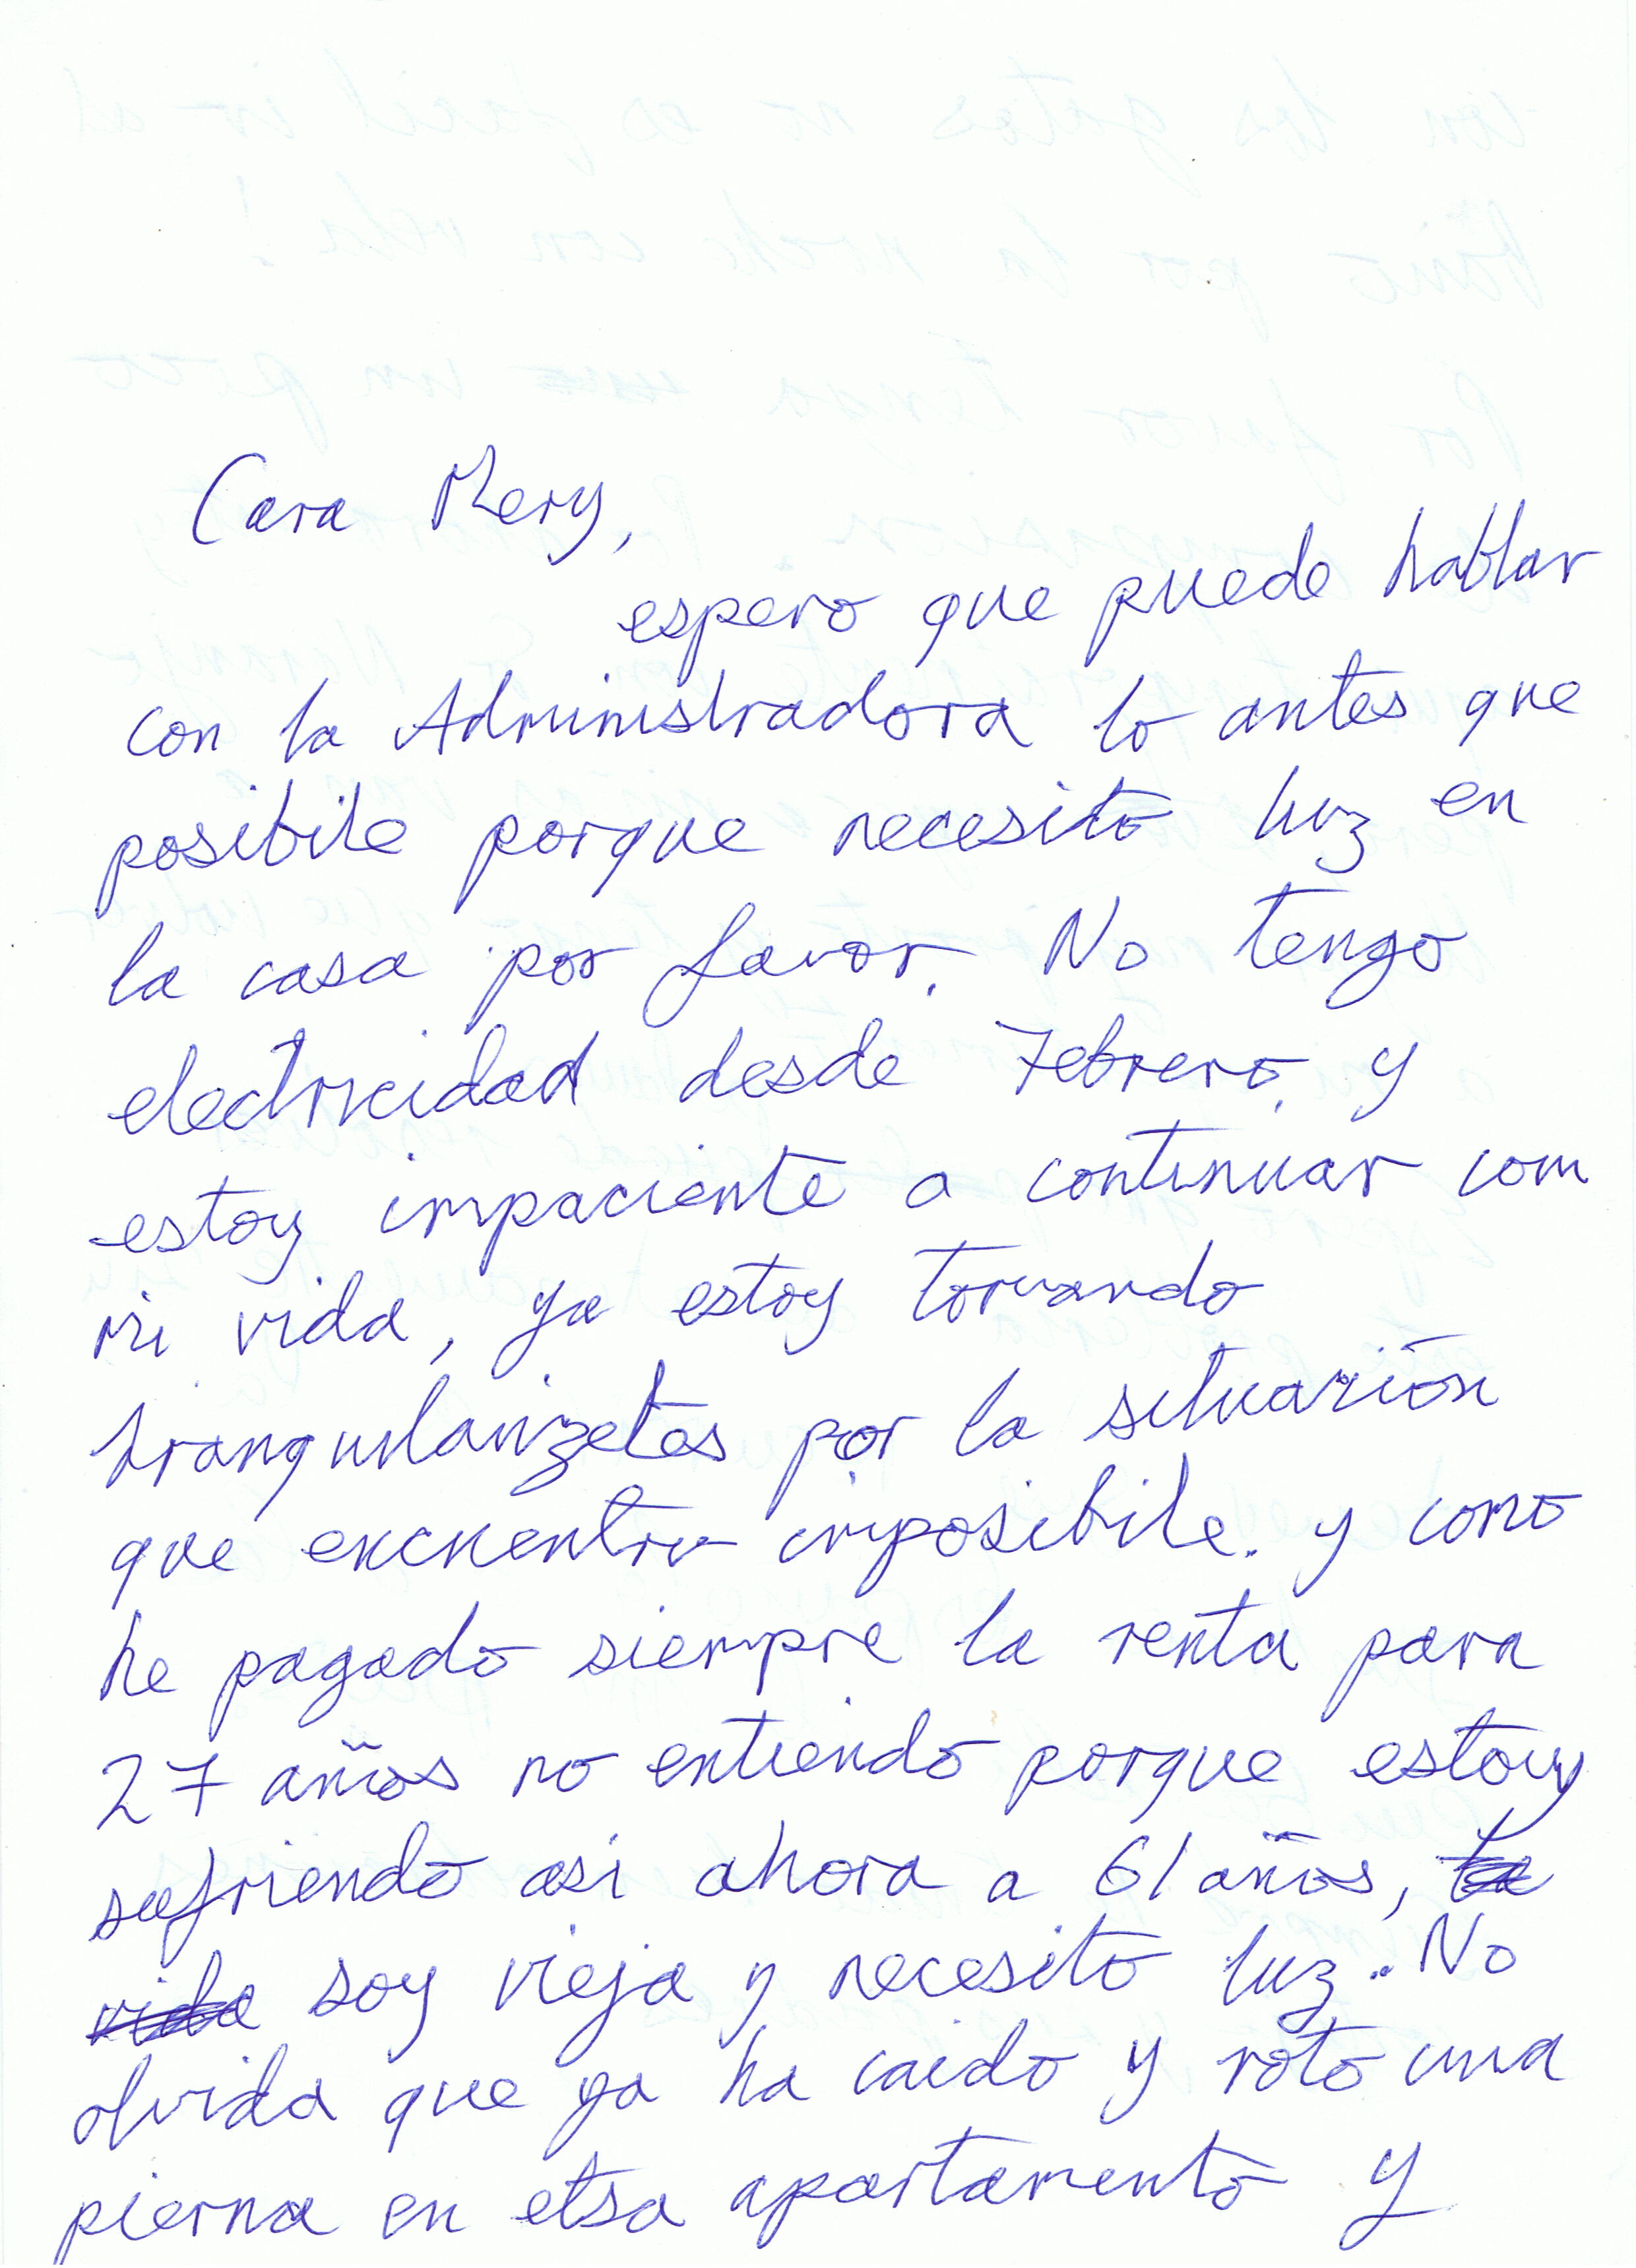 Cara Mery,
espero que puede hablar
con la Administradora lo antes que
posibile porque necesito luz en
la casa por favor. No tengo
electricidad desde Febrero, y
estoy impaciente a continuar com
mi vida, ya estoy tomando
por la situación
que encuentro imposibile. y como
he pagado siempre la renta para
27 años no entiendo porque estoy
sufriendo asi ahora a 61 años, la
vida soy vieja y necesito luz. No
olvida que ya ha caido y roto una
pierna en etsa apartamento y